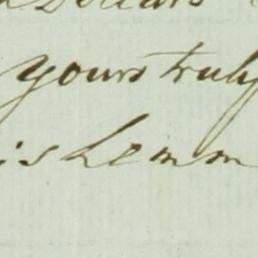 Dollars
yours truly
is Lemm